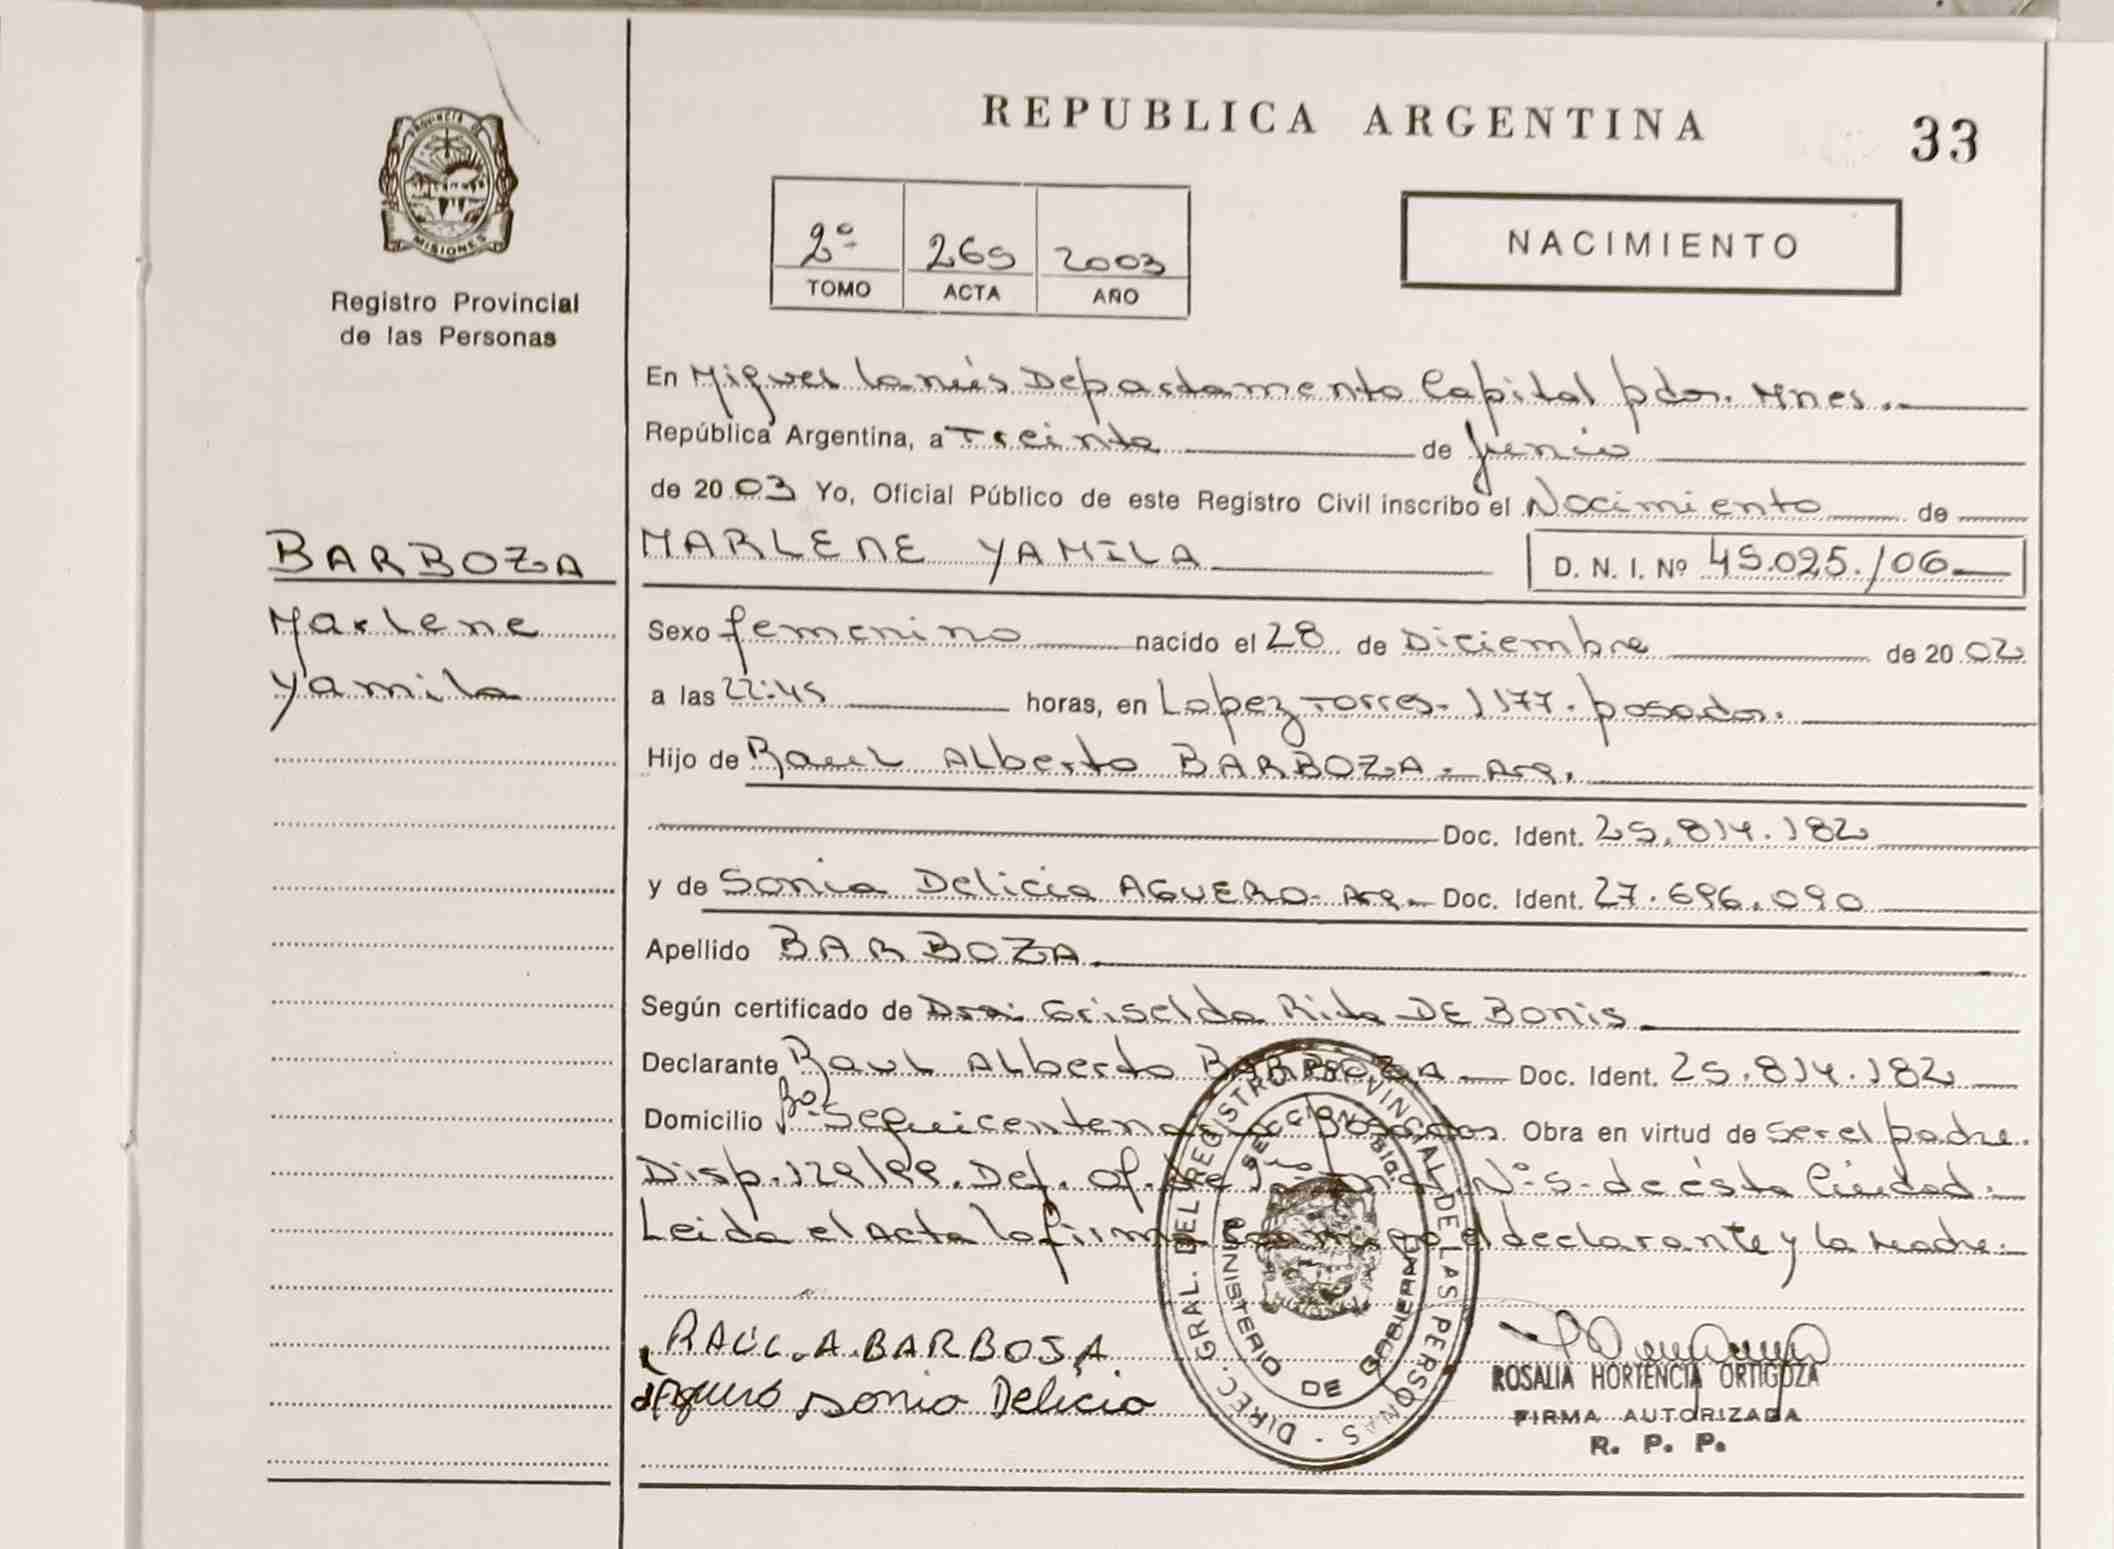 REPUBLICA ARGENTINA
33
PROVINCIA DE
MISIONES
Registro Provincial
de las Personas
2º 265 2003
TOMO ACTA AÑO
NACIMIENTO
En Miguel Lanús Departamento Capital pdas. Mnes.
República Argentina, a Treinta de junio
de 2003 Yo, Oficial Público de este Registro Civil inscribo el Nacimiento de
MARLENE YAMILA D. N. I. Nº 45.025.106
BARBOZA
Marlene
Yamila
Sexo femenino nacido el 28 de Diciembre de 2002
a las 22:45 horas, en Lopez Torres. 1177. posadas.
Hijo de Raul Alberto BARBOZA - Arg.
Doc. Ident. 25.814.182
y de Sonia Delicia AGUERO - Arg. Doc. Ident. 27.696.090
Apellido BARBOZA
Según certificado de Dra: Griselda Rita DE BONIS
Declarante Raul Alberto BARBOZA Doc. Ident. 25.814.182
Domicilio Bº Sequicentenario Posadas Obra en virtud de ser el padre.
Disp. 129/99. Def. Of. de Nº 5 - de ésta Ciudad.
Leida el Acta la firma conmigo el declarante y la Madre.
RAÚL A. BARBOSA
Aguero Sonia Delicia
DIREC. GRAL. DEL REGISTRO PROVINCIAL DE LAS PERSONAS
MINISTERIO DE GOBIERNO
ROSALIA HORTENCIA ORTIGOZA
FIRMA AUTORIZADA
R. P. P.